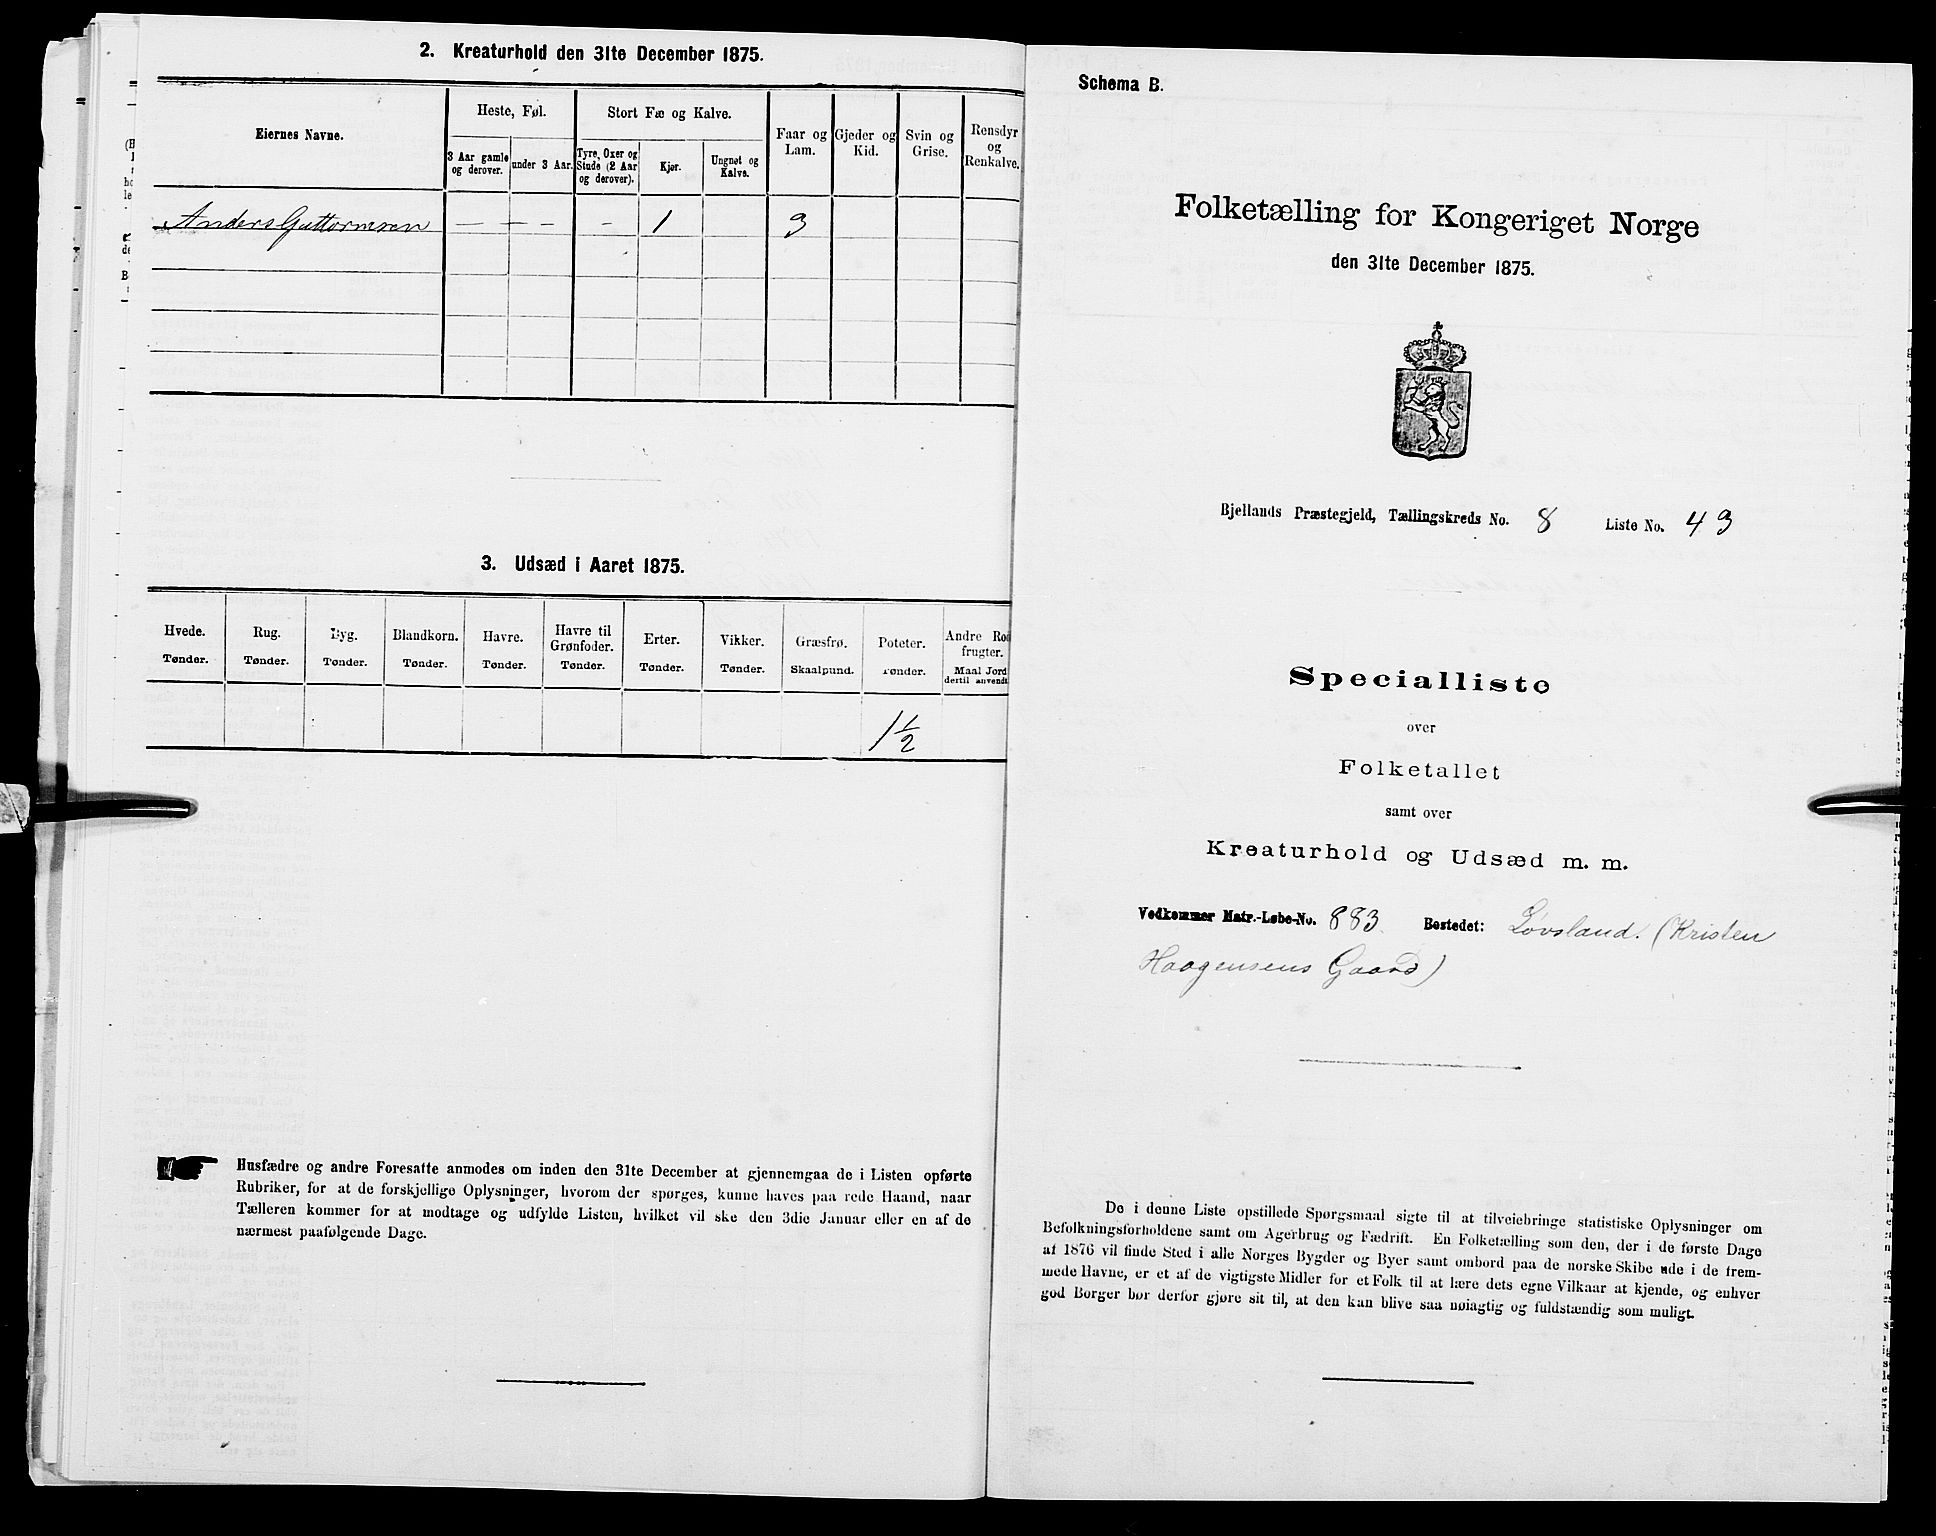 2. Kreaturhold den 31te December 1875.
Eiernes Navne.
Heste, Føl.
3 Aar gamle og derover.
under 3 Aar.
Stort Fæ og Kalve.
Tyre, Oxer og Stude (2 Aar og derover).
Kjør.
Ungnøt og Kalve.
Faar og Lam.
Gjeder og Kid.
Svin og Grise.
Rensdyr og Renkalve.
Anders Guttormsen — — — — 1 3
3. Udsæd i Aaret 1875.
Hvede. Tønder.
Rug. Tønder.
Byg. Tønder.
Blandkorn. Tønder.
Havre. Tønder.
Havre til Grønfoder. Tønder.
Erter. Tønder.
Vikker. Tønder.
Græsfrø. Skaalpund.
Poteter. Tønder.
Andre Rod frugter. Maal Jord dertil anvendt
1 1/2
Husfædre og andre Foresatte anmodes om inden den 31te December at gjennemgaa de i Listen opførte
Rubriker, for at de forskjellige Oplysninger, hvorom der spørges, kunne haves paa rede Haand, naar
Tælleren kommer for at modtage og udfylde Listen, hvilket vil ske den 3die Januar eller en af de
nærmest paafølgende Dage.
Schema B.
Folketælling for Kongeriget Norge
den 31te December 1875.
Bjellands Præstegjeld, Tællingskreds No. 8 Liste No. 43
Specialliste
over
Folketallet
samt over
Kreaturhold og Udsæd m. m.
Vedkommer Matr.-Løbe-No. 883. Bostedet: Løvsland. (Kristen
Haagensens Gaard)
De i denne Liste opstillede Spørgsmaal sigte til at tilveiebringe statistiske Oplysninger om
Befolkningsforholdene samt om Agerbrug og Fædrift. En Folketælling som den, der i de første Dage
af 1876 vil finde Sted i alle Norges Bygder og Byer samt ombord paa de norske Skibe ude i de frem-
mede Havne, er et af de vigtigste Midler for et Folk til at lære dets egne Vilkaar at kjende, og enhver
god Borger bør derfor gjøre sit til, at den kan blive saa nøiagtig og fuldstændig som muligt.